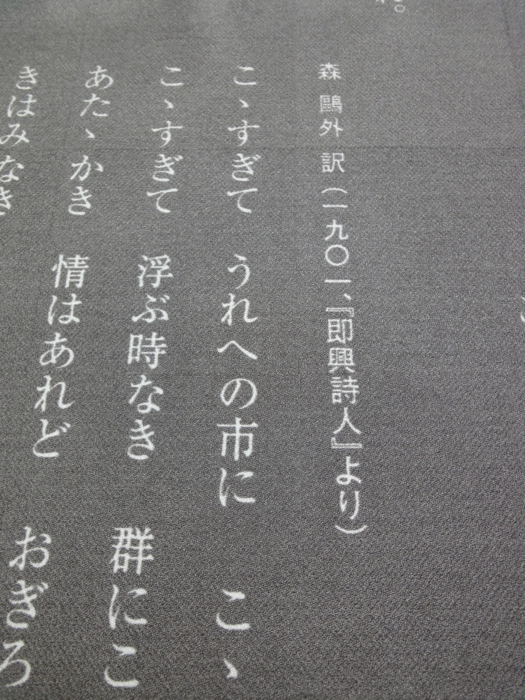 森鷗外 訳（一九〇一、『即興詩人』より）
こゝすぎて　うれへの市に　こゝ
こゝすぎて　浮ぶ時なき　群にこ
あたゝかき　情はあれど　おぎろ
きはみなき